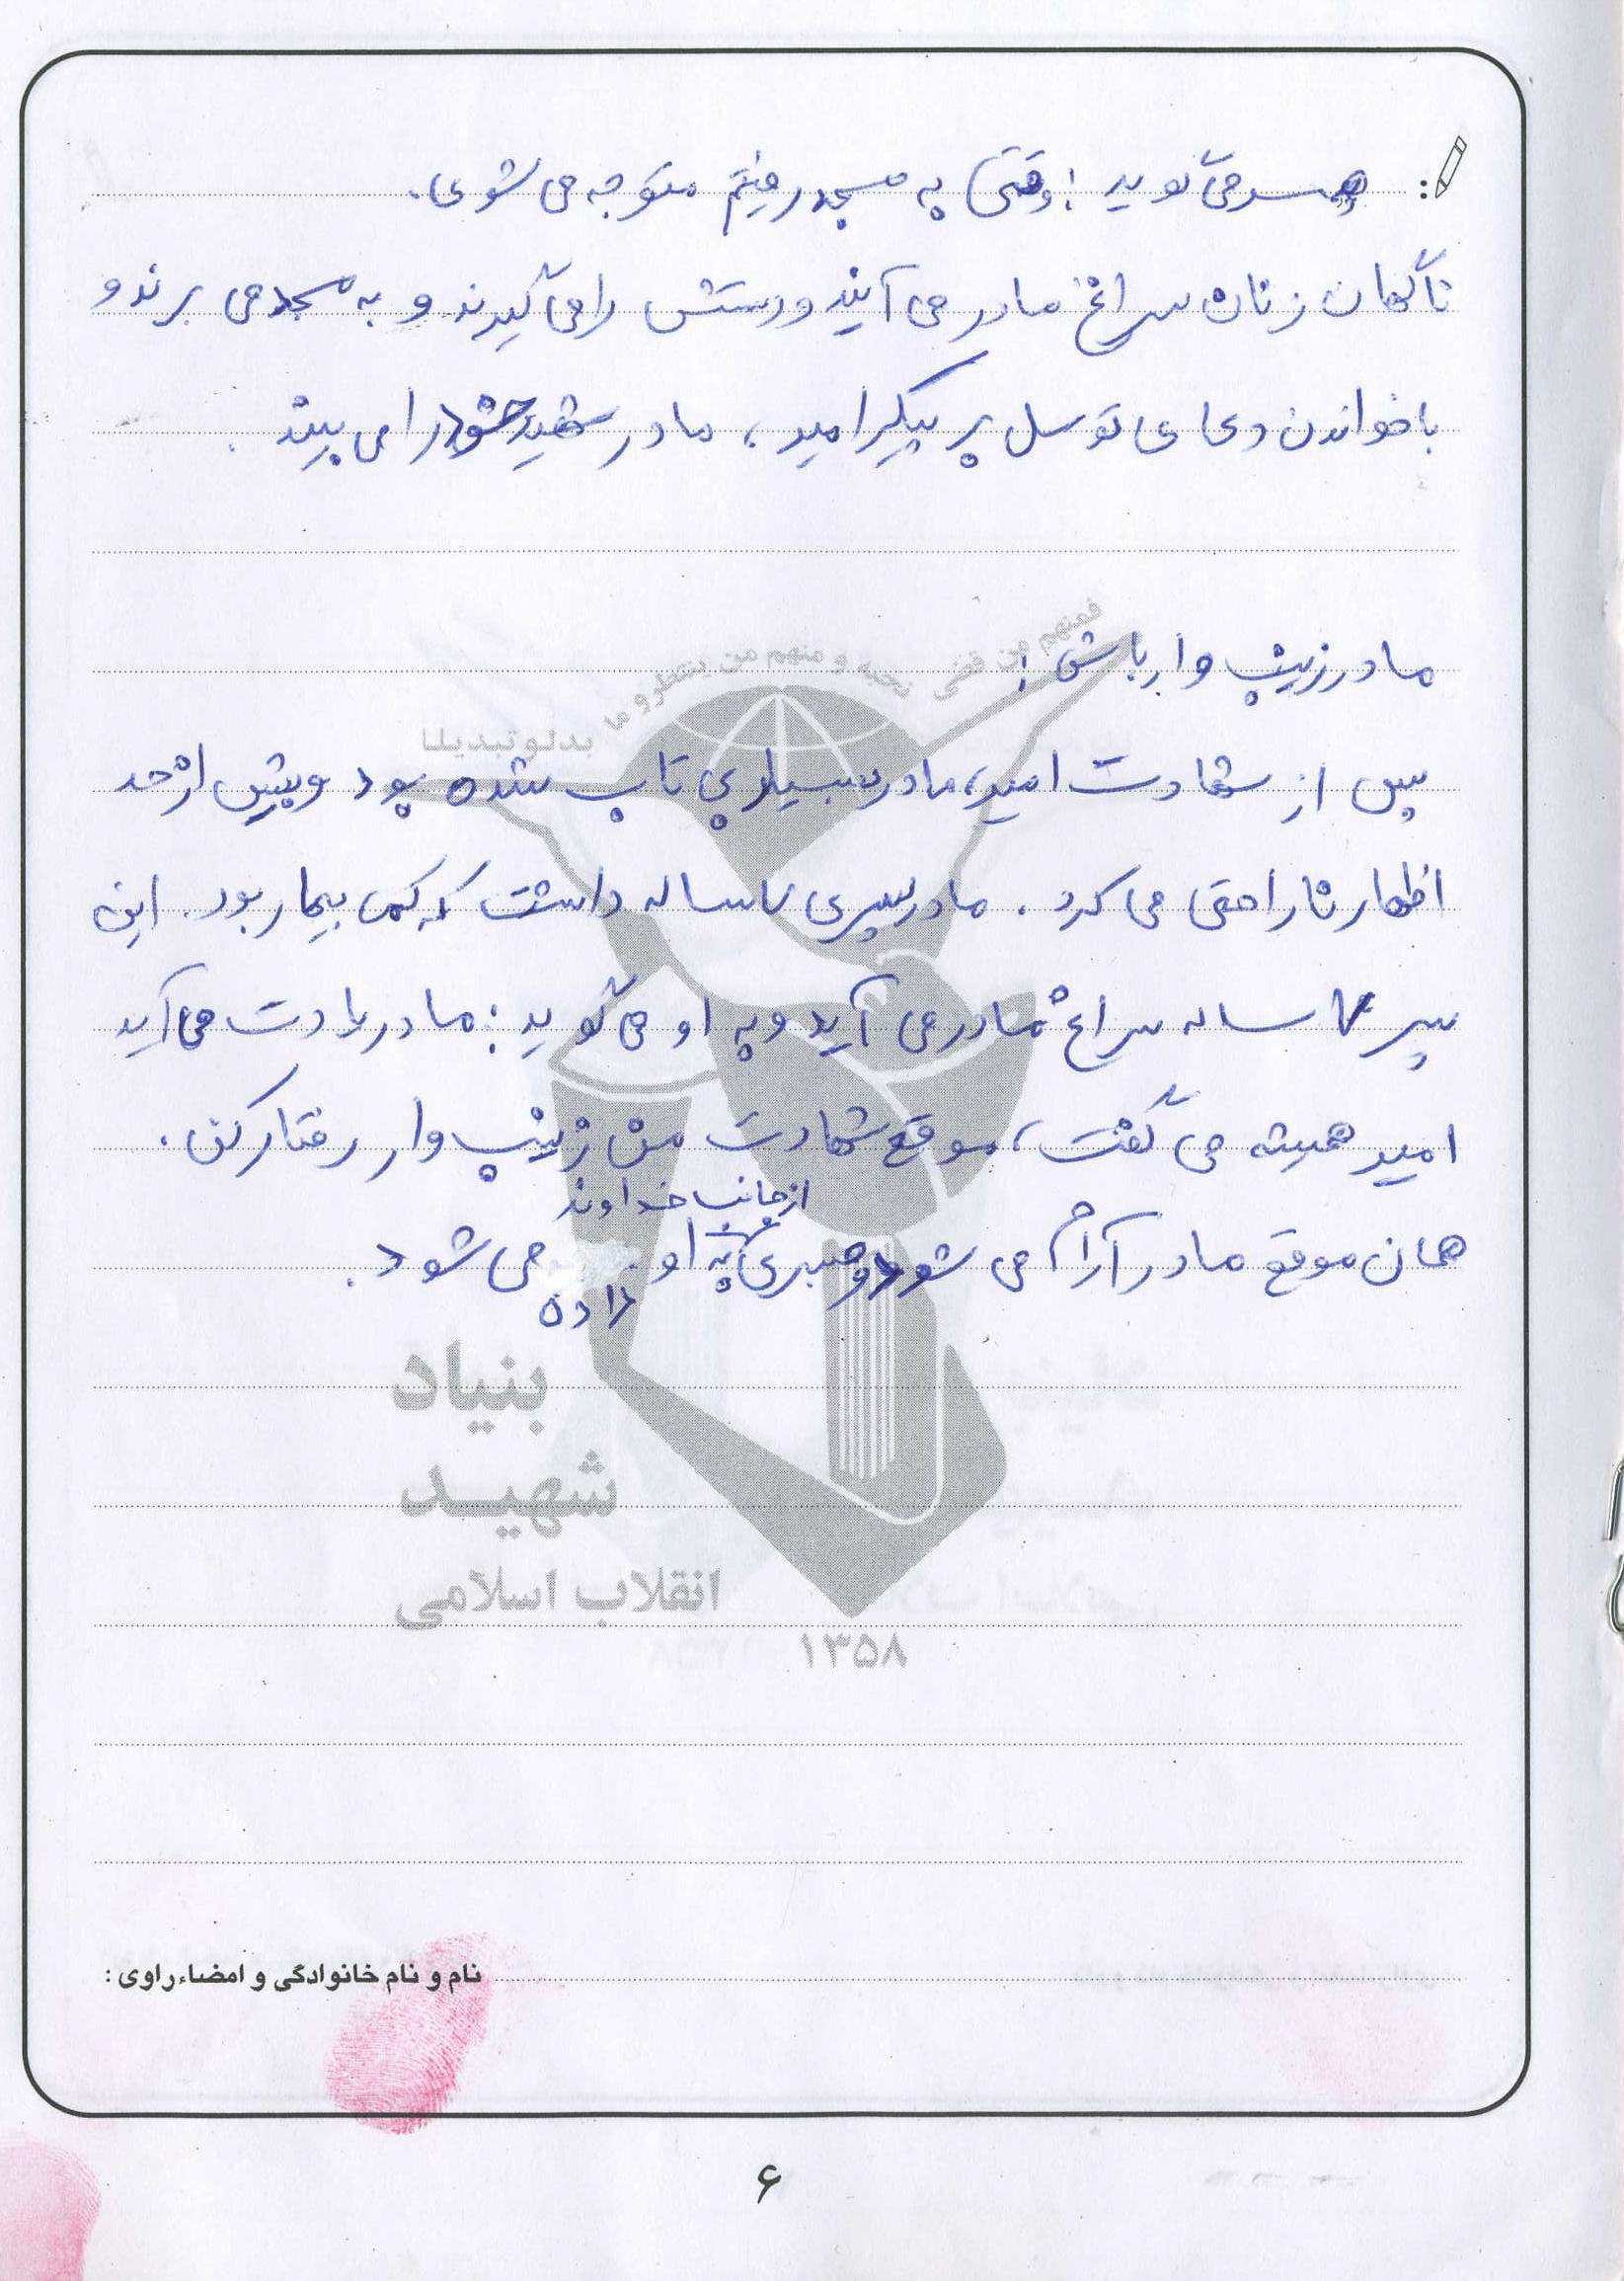 همسر می گوید: وقتی به مسجد رفتم متوجه می شوی.
ناگهان زنان سراغ مادر می آیند و دستش را می گیرند و به مسجد می برند و
با خواندن دعای توسل بر پیکر امید، مادر شهید خود را می بیند.
مادر زینب وار باش:
پس از شهادت امید، مادر بسیار بی تاب شده بود و بیش از حد
اظهار ناراحتی می کرد. مادر پسری ۷ ساله داشت که کمی بیمار بود. این
پسر ۷ ساله سراغ مادر می آید و به او می گوید: مادر یادت می آید
امید همیشه می گفت، موقع شهادت من زینب وار رفتار کن.
از جانب خداوند
همان موقع مادر آرام می شود و صبری به او می شود.
داده
فمنهم من قضی نحبه و منهم من ینتظر و ما بدلو تبدیلا
بنیاد
شهید
انقلاب اسلامی
۱۳۵۸
نام و نام خانوادگی و امضاء راوی:
۶